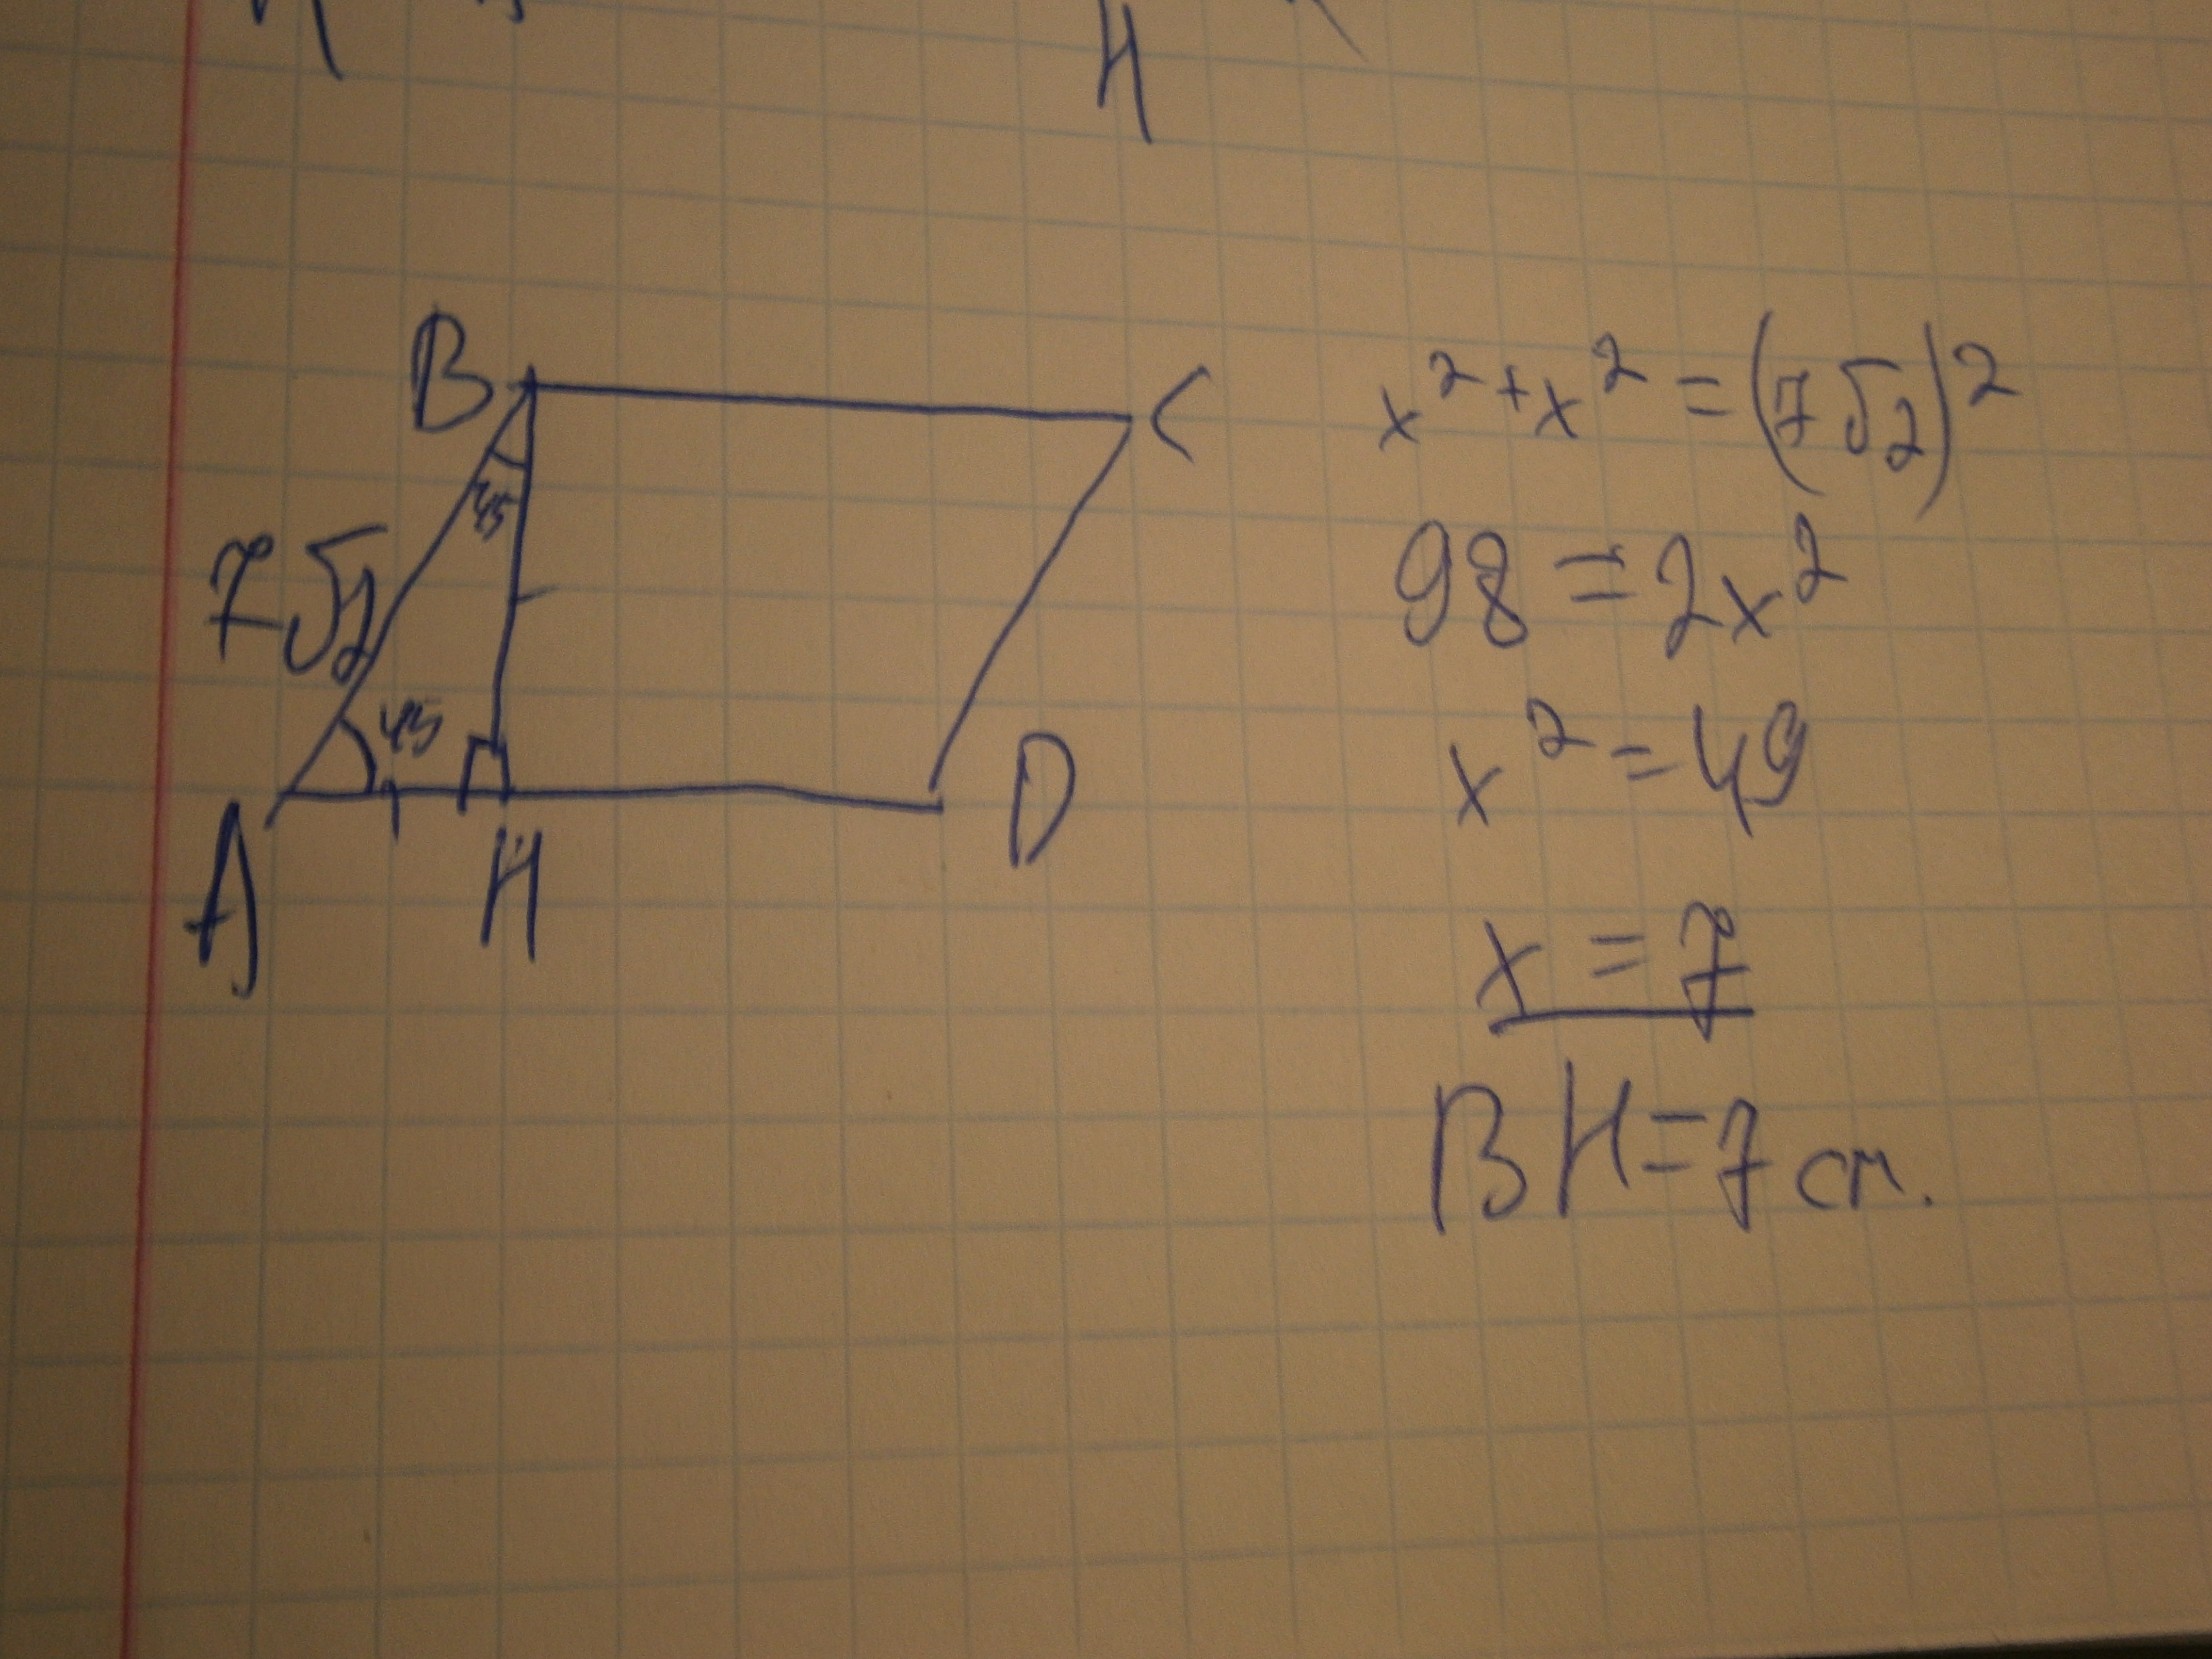 H
B
C
45
7√2
45
A
H
D
x² + x² = (7√2)²
98 = 2x²
x² = 49
x = 7
BH = 7 см.